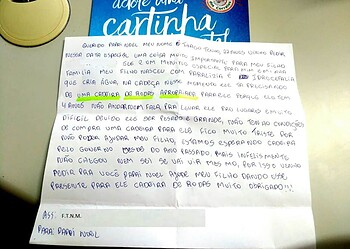 adote uma
cartinha
QUERIDO PAPAI NOEL MEU NOME É TENHO ANOS VENHO PEDIR
NESSA DATA ESPECIAL, UMA COISA MUITO IMPORTANTE PARA MEU FILHO
QUE É UM MENINO ESPECIAL PARA MIM E MINHA
FAMILIA MEU FILHO NASCEU COM PARALIZIA E IDROCEFALIA
QUE CRIA ÁGUA NA CABEÇA NO MOMENTO ELE TA PRECISANDO
DE UMA CADEIRA DE RODAS APROPRIADA PARA ELE PORQUE ELE TEM
4 ANOS NÃO ANDA NEM FALA PRA LEVAR ELE PRO LUGAR É MUITO
DIFICIL DEVIDO ELE SER PESADO E GRANDE, NÃO TENHO CONDIÇÕES
DE COMPRA UMA CADEIRA PARA ELE FICO MUITO TRISTE POR
NÃO PODER AJUDAR MEU FILHO, ESTAMOS ESPERANDO CADEIRA
PELO GOVERNO DESDE DO ANO PASSADO, MAIS INFELISMENTE
NÃO CHEGOU NEM SEI SE VAI VIR MESMO, POR ISSO VENHO
PEDIR PRA VOCÊ PAPAI NOEL AJUDE MEU FILHO DANDO ESSE
PRESENTE PARA ELE CADEIRA DE RODAS MUITO OBRIGADO!!!
ASS: F.T.N.M.
PARA: PAPAI NOEL